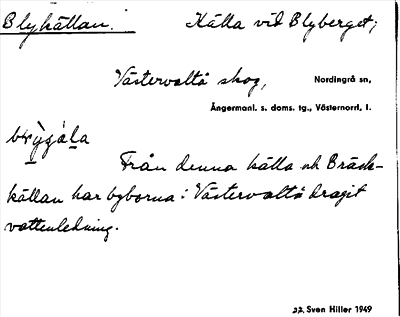 Blykällan. Källa vid Blyberget;
Västervalta skog, Nordingrå sn,
Ångermanl. s. doms. tg., Västernorrl. l.
Från denna källa och Bräck-
källan har byborna i Västervalta dragit
vattenledning.
22. Sven Hiller 1949